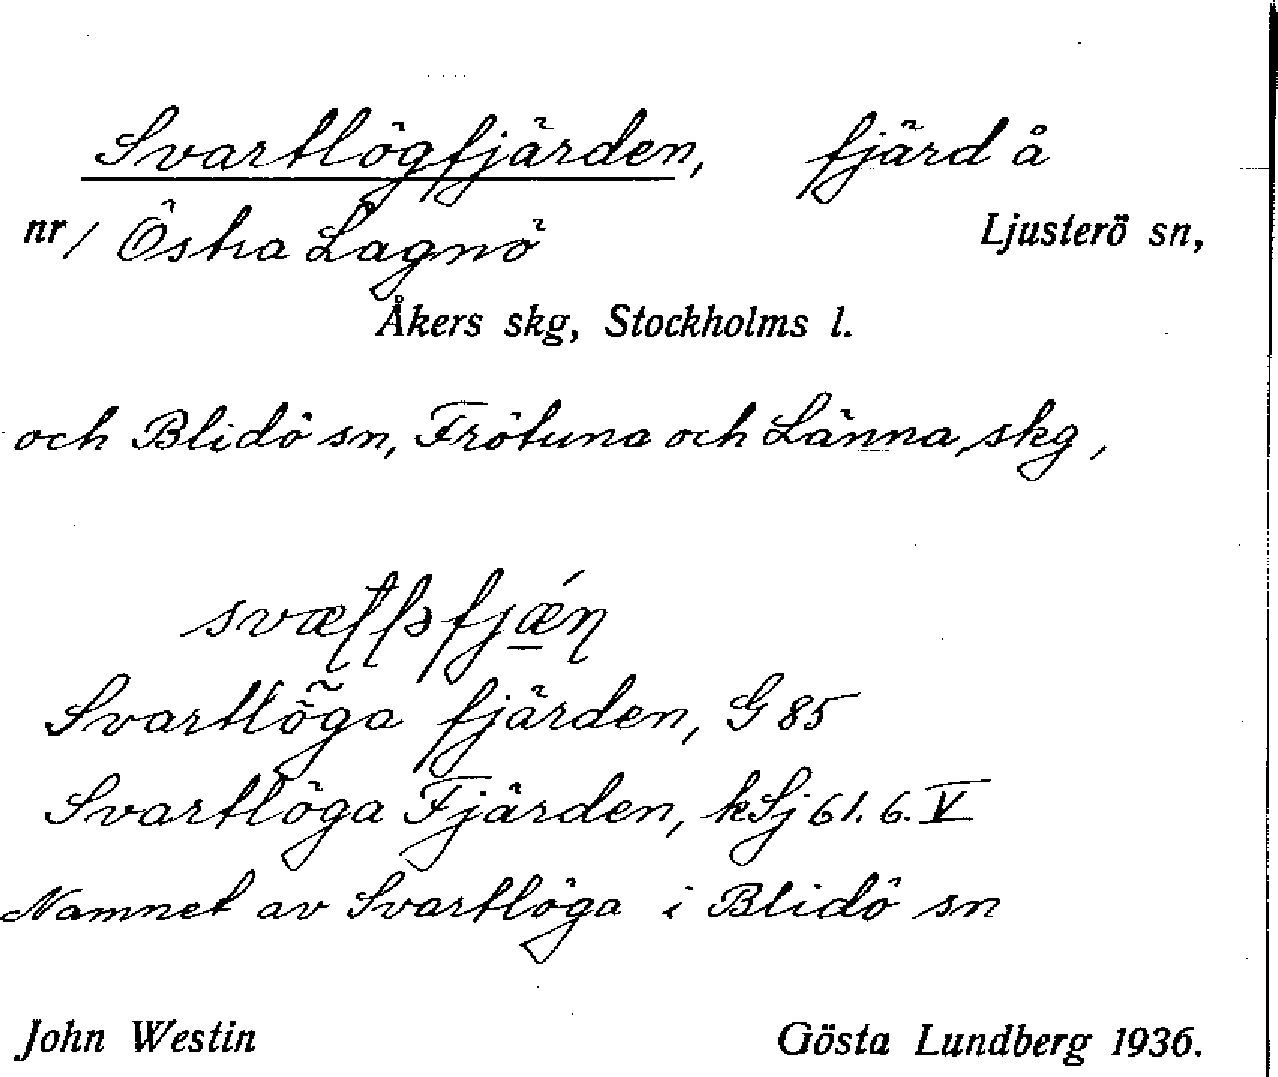 Svartlögfjärden, fjärd å
nr/ Östra Lagnö Ljusterö sn,
Åkers skg, Stockholms l.
och Blidö sn, Frötuna och Länna skg,
Svartlöga fjärden, G 85
Svartlöga Fjärden, kSj 61. 6. V
Namnet av Svartlöga i Blidö sn
John Westin Gösta Lundberg 1936.